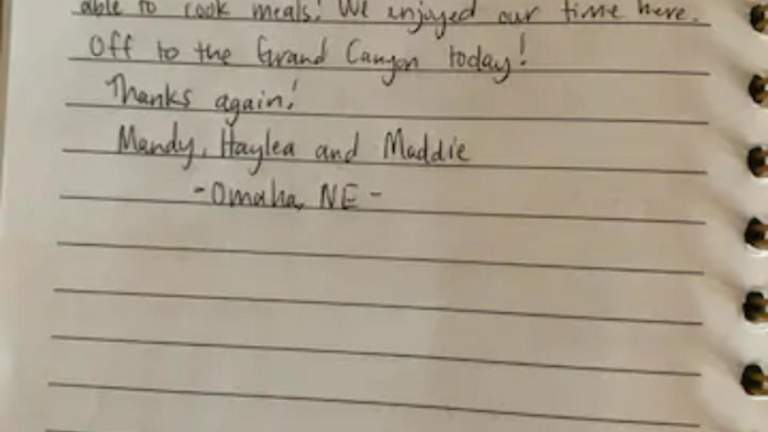 able to cook meals! We enjoyed our time here.
Off to the Grand Canyon today!
Thanks again!
Mandy, Haylea and Maddie
-Omaha, NE-